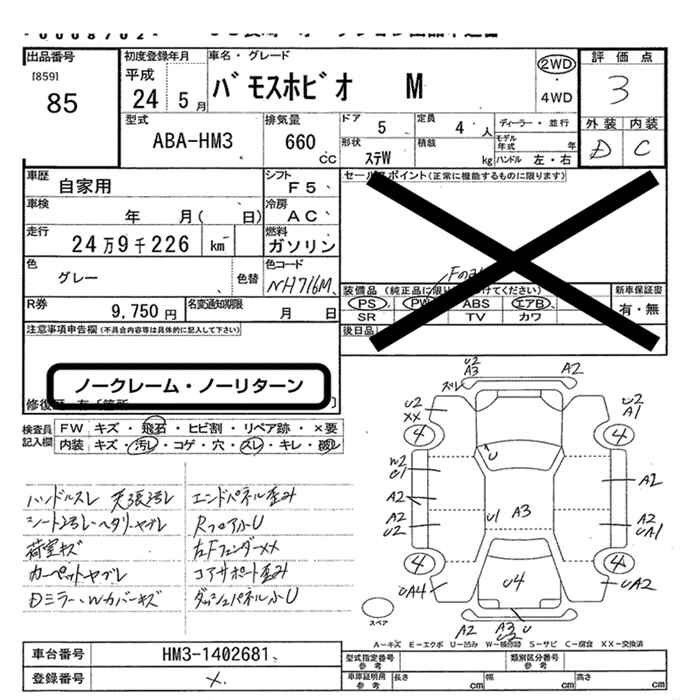 出品番号
[859]
85
初度登録年月
平成
24 5 月
車名・グレード
バモスホビオ M
2WD
・
4WD
評価点
3
外装 内装
D C
型式
ABA-HM3
排気量
660 CC
ドア 5
定員 4 人
形状 ステW
積載 kg
ディーラー・並行
モデル年式 年
ハンドル 左・右
車歴
自家用
シフト
F5
車検
年 月( 日)
冷房
AC
走行
24万9千226 km
燃料
ガソリン
色
グレー
色替
色コード
NH716M
R券
9,750円
名変通知期限
月 日
セールスポイント(正常に機能するものに限ります)
装備品
PS PW ABS エアB
SR TV カワ
後日品
新車保証書
有・無
注意事項申告欄(不具合内容等は具体的に記入して下さい)
ノークレーム・ノーリターン
検査員記入欄
FW キズ・飛石・ヒビ割・リペア跡・×要
内装 キズ・汚レ・コゲ・穴・スレ・キレ・破レ
ハンドルスレ 天張汚レ
エンドパネル歪み
シート汚レ・ヘタリ・ヤブレ
RフロアふU
荷室キズ
左Fフェンダー××
カーペットヤブレ
コアサポート歪み
Dミラー、Wカバーキズ
ダッシュパネルふU
U2
A3
A2
スレ
U2
××
U2
A1
4
4
U
A2
A2
U2
U1
A3
A2
UA1
4
4
UA4
U4
UA2
A2
A3
U2
U
スペア
A-キズ E-エクボ U-凹み W-補修跡 S-サビ C-腐食 XX-交換済
車台番号
HM3-1402681
登録番号
×
型式指定番号
参考
類別区分番号
参考
車庫証明用
参考
長さ cm
幅 cm
高さ cm